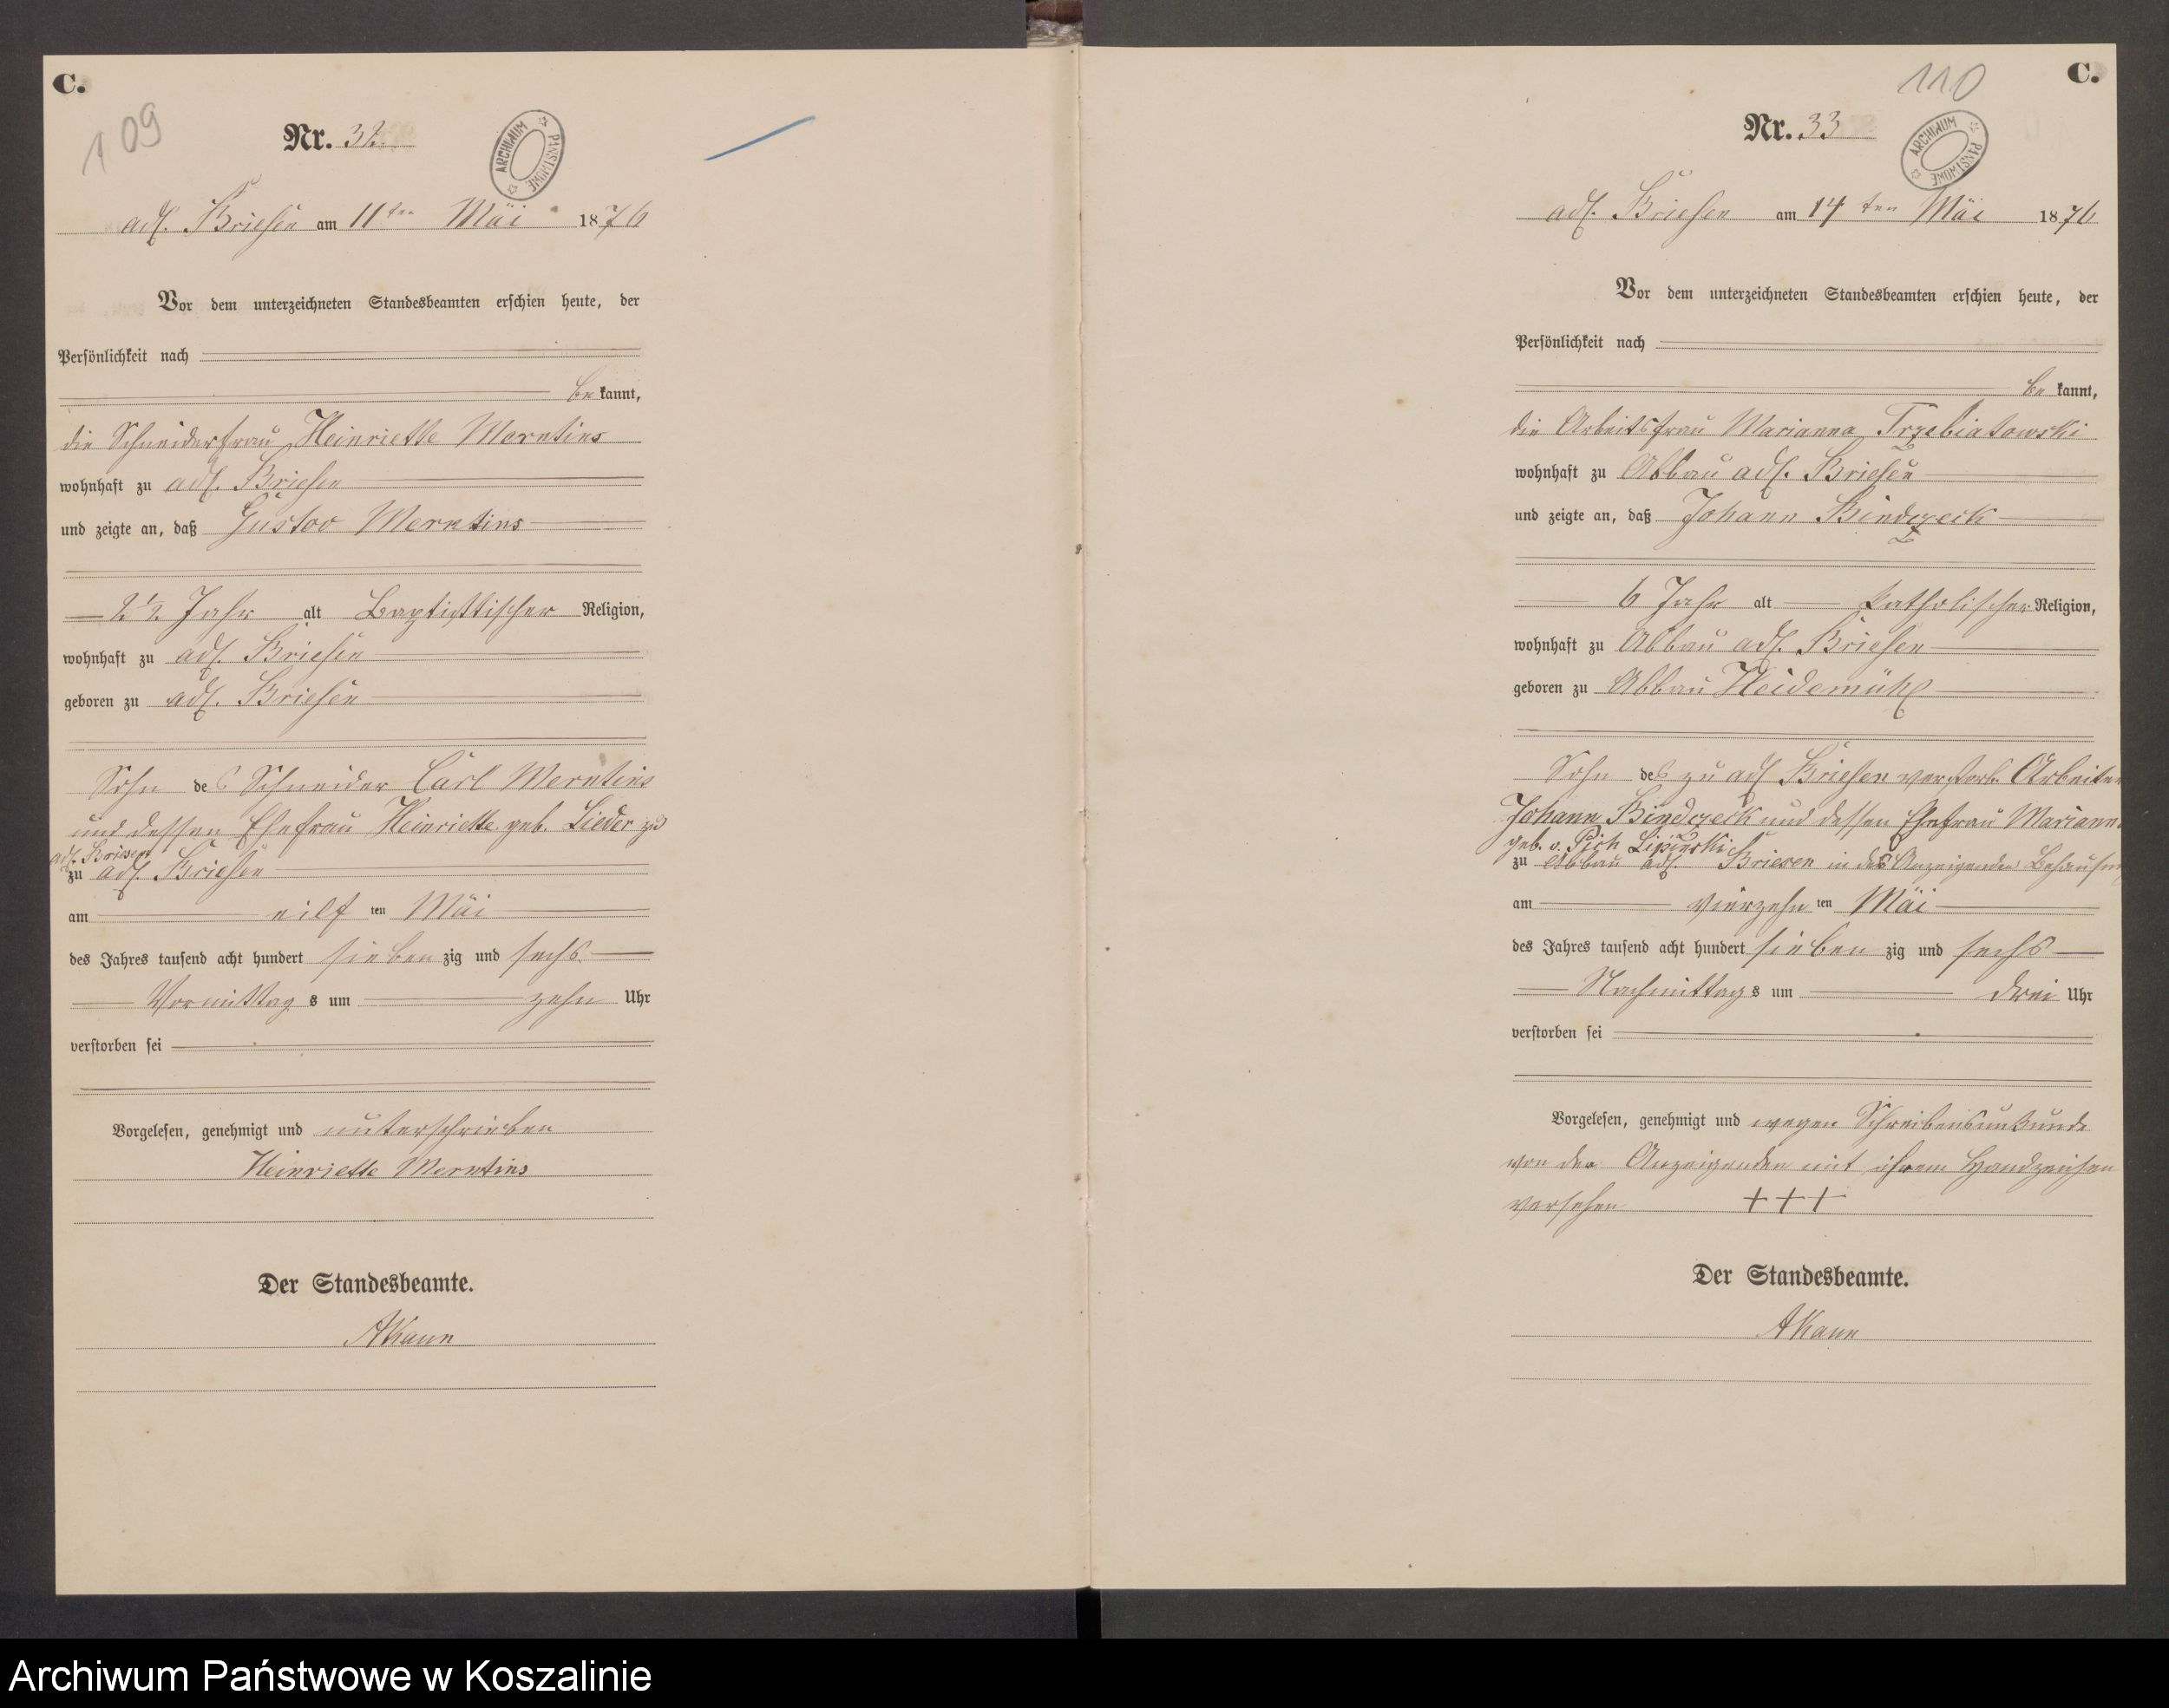 C.
109
Nr. 32.
ARCHIWUM PAŃSTWOWE
adl. Briesen am 11ten Mai 1876
Vor dem unterzeichneten Standesbeamten erschien heute, der
Persönlichkeit nach
bekannt,
die Schneiderfrau Heinriette Merntins
wohnhaft zu adl. Briesen
und zeigte an, daß Gustav Merntins
2 1/2 Jahr alt Baptistischer Religion,
wohnhaft zu adl. Briesen
geboren zu adl. Briesen
Sohn des Schneider Carl Merntins
und dessen Ehefrau Heinriette geb. Lieder zu
adl. Briesen
zu adl. Briesen
am eilf ten Mai
des Jahres tausend acht hundert siebenzig und sechs
Vormittags um zehn Uhr
verstorben sei
Vorgelesen, genehmigt und unterschrieben
Heinriette Merntins
Der Standesbeamte.
AKann
C.
110
Nr. 33
ARCHIWUM PAŃSTWOWE
adl. Briesen am 14 ten Mai 1876
Vor dem unterzeichneten Standesbeamten erschien heute, der
Persönlichkeit nach
bekannt,
die Arbeitsfrau Marianna Trzebiatowski
wohnhaft zu Abbau adl. Briesen
und zeigte an, daß Johann Bindczeck
6 Jahr alt katholischer Religion,
wohnhaft zu Abbau adl. Briesen
geboren zu Abbau Heidemühl
Sohn des zu adl Briesen verstorb. Arbeiter
Johann Bindczeck und dessen Ehefrau Mariann
geb. v. Pich Lipinski
zu Abbau adl. Briesen in der Anzeigenden Behausung
am vierzehn ten Mai
des Jahres tausend acht hundert siebenzig und sechs
Nachmittags um drei Uhr
verstorben sei
Vorgelesen, genehmigt und wegen Schreibensunkunde
von der Anzeigenden mit ihrem Handzeichen
versehen +++
Der Standesbeamte.
AKann
Archiwum Państwowe w Koszalinie